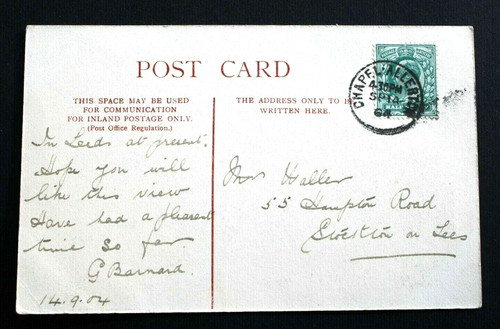 POST CARD
THIS SPACE MAY BE USED
FOR COMMUNICATION
FOR INLAND POSTAGE ONLY.
(Post Office Regulation.)
In Leeds at present.
Hope you will
like this view
Have had a pleasant
time so far.
G Barnard.
14.9.04
THE ADDRESS ONLY TO BE
WRITTEN HERE.
CHAPEL ALLERTON
4.30PM
SP
04
HALF
Mrs Waller
55 Hampton Road
Stockton on Tees